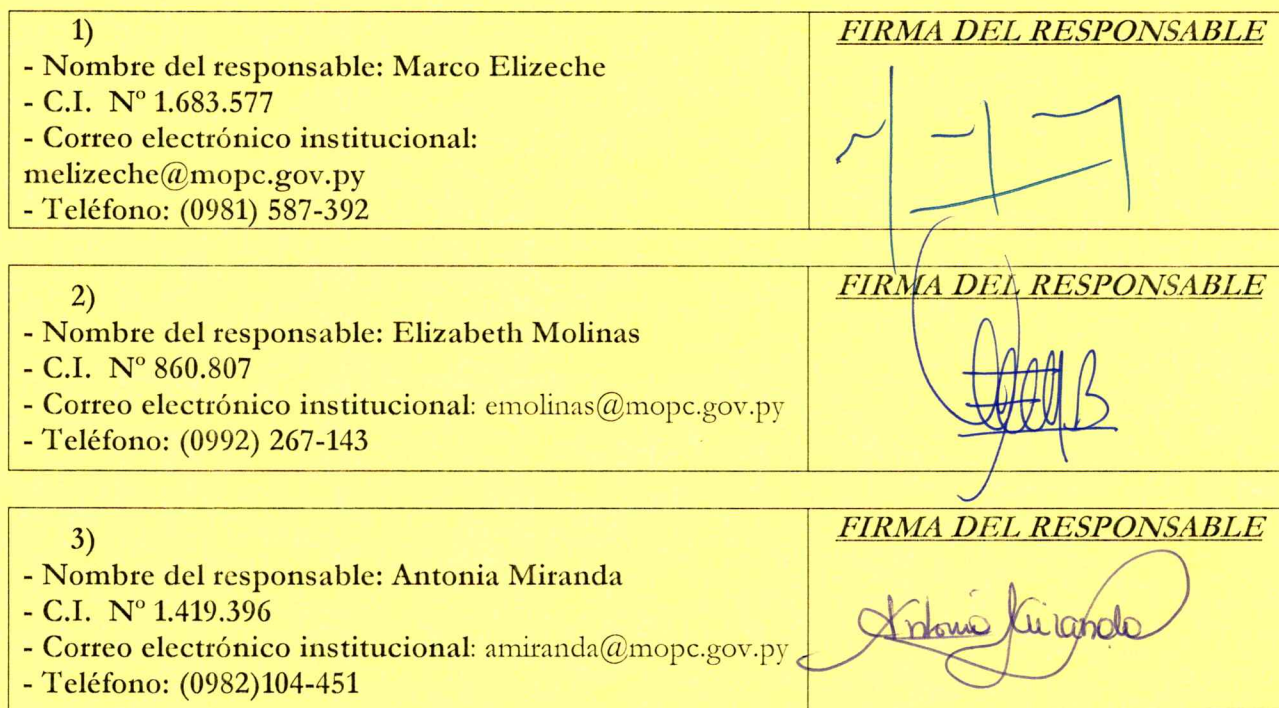 1)
- Nombre del responsable: Marco Elizeche
- C.I. Nº 1.683.577
- Correo electrónico institucional:
melizeche@mopc.gov.py
- Teléfono: (0981) 587-392
FIRMA DEL RESPONSABLE
2)
- Nombre del responsable: Elizabeth Molinas
- C.I. Nº 860.807
- Correo electrónico institucional: emolinas@mopc.gov.py
- Teléfono: (0992) 267-143
FIRMA DEL RESPONSABLE
3)
- Nombre del responsable: Antonia Miranda
- C.I. Nº 1.419.396
- Correo electrónico institucional: amiranda@mopc.gov.py
- Teléfono: (0982)104-451
FIRMA DEL RESPONSABLE
Antonia Miranda